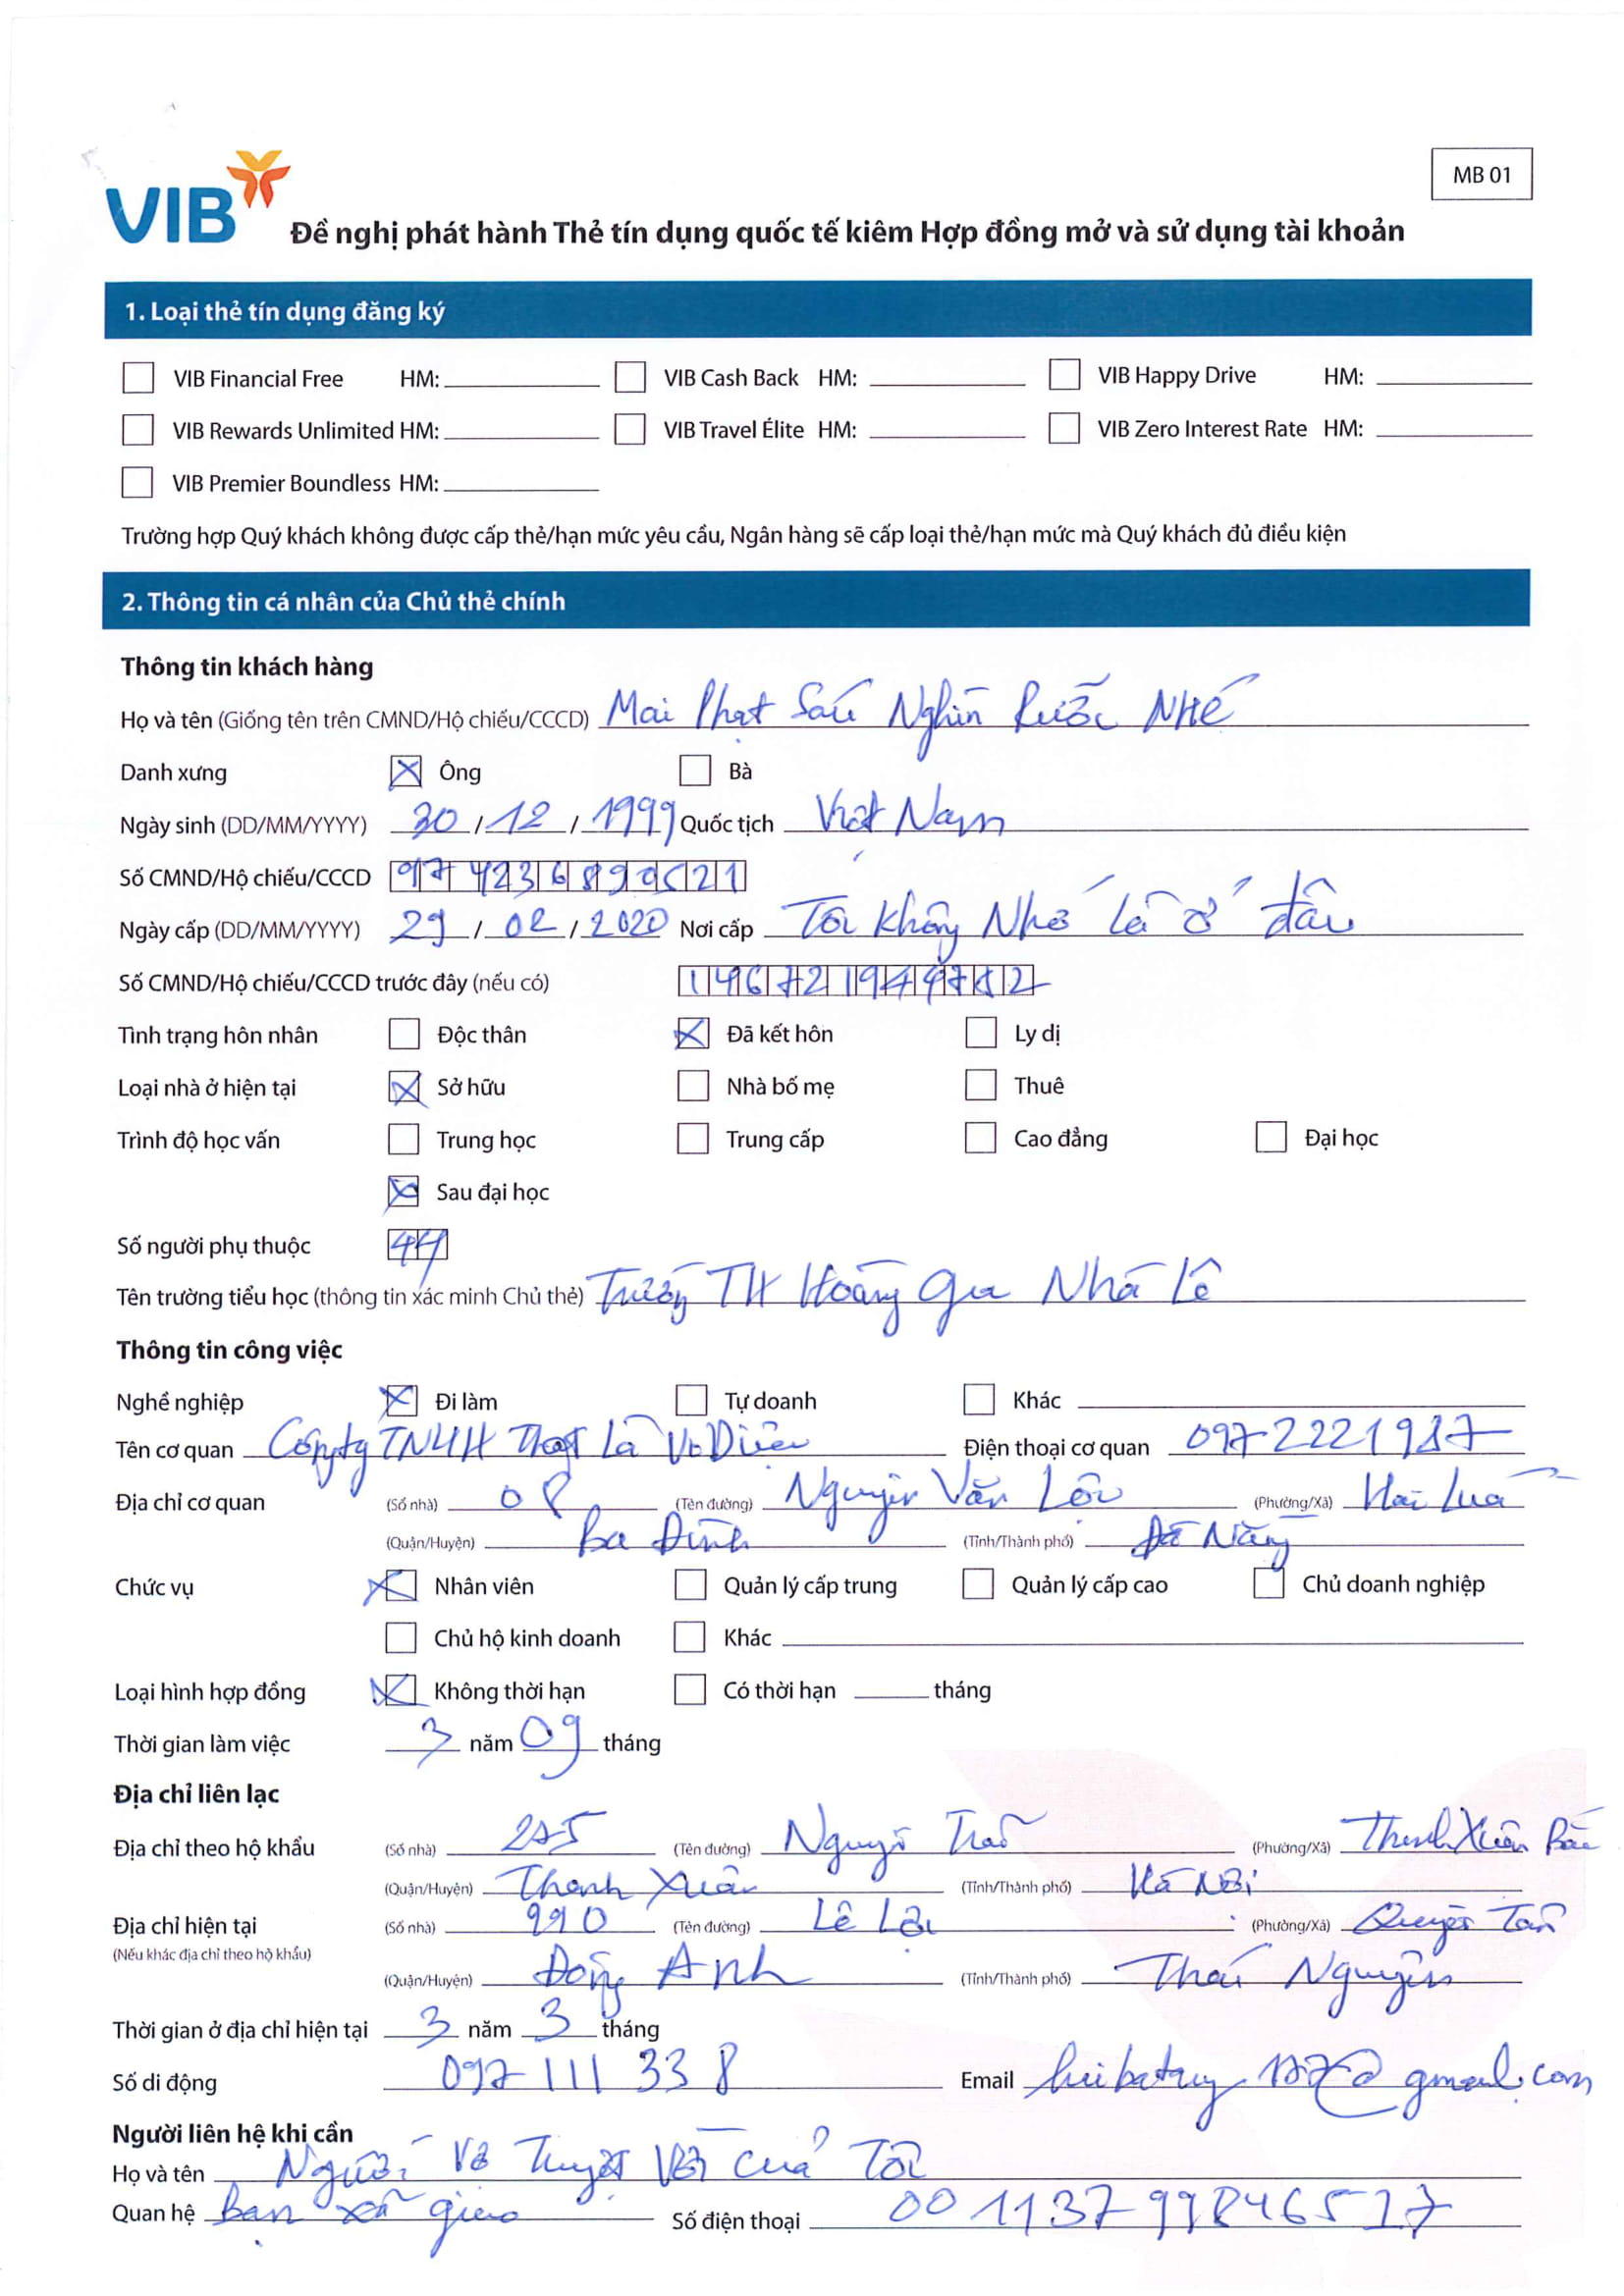 MB 01
VIB
Đề nghị phát hành Thẻ tín dụng quốc tế kiêm Hợp đồng mở và sử dụng tài khoản
1. Loại thẻ tín dụng đăng ký
VIB Financial Free HM: VIB Cash Back HM: VIB Happy Drive HM:
VIB Rewards Unlimited HM: VIB Travel Élite HM: VIB Zero Interest Rate HM:
VIB Premier Boundless HM:
Trường hợp Quý khách không được cấp thẻ/hạn mức yêu cầu, Ngân hàng sẽ cấp loại thẻ/hạn mức mà Quý khách đủ điều kiện
2. Thông tin cá nhân của Chủ thẻ chính
Thông tin khách hàng
Họ và tên (Giống tên trên CMND/Hộ chiếu/CCCD) Mai Phạt Sáu Nghìn Rưỡi Nhé
Danh xưng Ông Bà
Ngày sinh (DD/MM/YYYY) 30 / 12 / 1999 Quốc tịch Việt Nam
Số CMND/Hộ chiếu/CCCD
Ngày cấp (DD/MM/YYYY) 29 / 02 / 2020 Nơi cấp Tôi Không Nhớ Là ở đâu
Số CMND/Hộ chiếu/CCCD trước đây (nếu có)
Tình trạng hôn nhân Độc thân Đã kết hôn Ly dị
Loại nhà ở hiện tại Sở hữu Nhà bố mẹ Thuê
Trình độ học vấn Trung học Trung cấp Cao đẳng Đại học
Sau đại học
Số người phụ thuộc 44
Tên trường tiểu học (thông tin xác minh Chủ thẻ) Trường TH Hoàng Gia Nhà Lê
Thông tin công việc
Nghề nghiệp Đi làm Tự doanh Khác
Tên cơ quan Công ty TNHH Thật Là Vô Diệu Điện thoại cơ quan 0972221987
Địa chỉ cơ quan (Số nhà) 08 (Tên đường) Nguyễn Văn Lộc (Phường/Xã) Hai Lúa
(Quận/Huyện) Ba Đình (Tỉnh/Thành phố) Đà Nẵng
Chức vụ Nhân viên Quản lý cấp trung Quản lý cấp cao Chủ doanh nghiệp
Chủ hộ kinh doanh Khác
Loại hình hợp đồng Không thời hạn Có thời hạn tháng
Thời gian làm việc 3 năm 09 tháng
Địa chỉ liên lạc
Địa chỉ theo hộ khẩu (Số nhà) (Tên đường) Nguyễn Trãi (Phường/Xã) Thanh Xuân Bắc
(Quận/Huyện) Thanh Xuân (Tỉnh/Thành phố) Hà Nội
Địa chỉ hiện tại (Số nhà) 990 (Tên đường) Lê Lợi (Phường/Xã) Quyết Tâm
(Nếu khác địa chỉ theo hộ khẩu)
(Quận/Huyện) Đông Anh (Tỉnh/Thành phố) Thái Nguyên
Thời gian ở địa chỉ hiện tại 3 năm 3 tháng
Số di động 097 111 33 8 Email @gmail.com
Người liên hệ khi cần
Họ và tên Người Vợ Tuyệt Vời Của Tôi
Quan hệ Bạn xã giao Số điện thoại